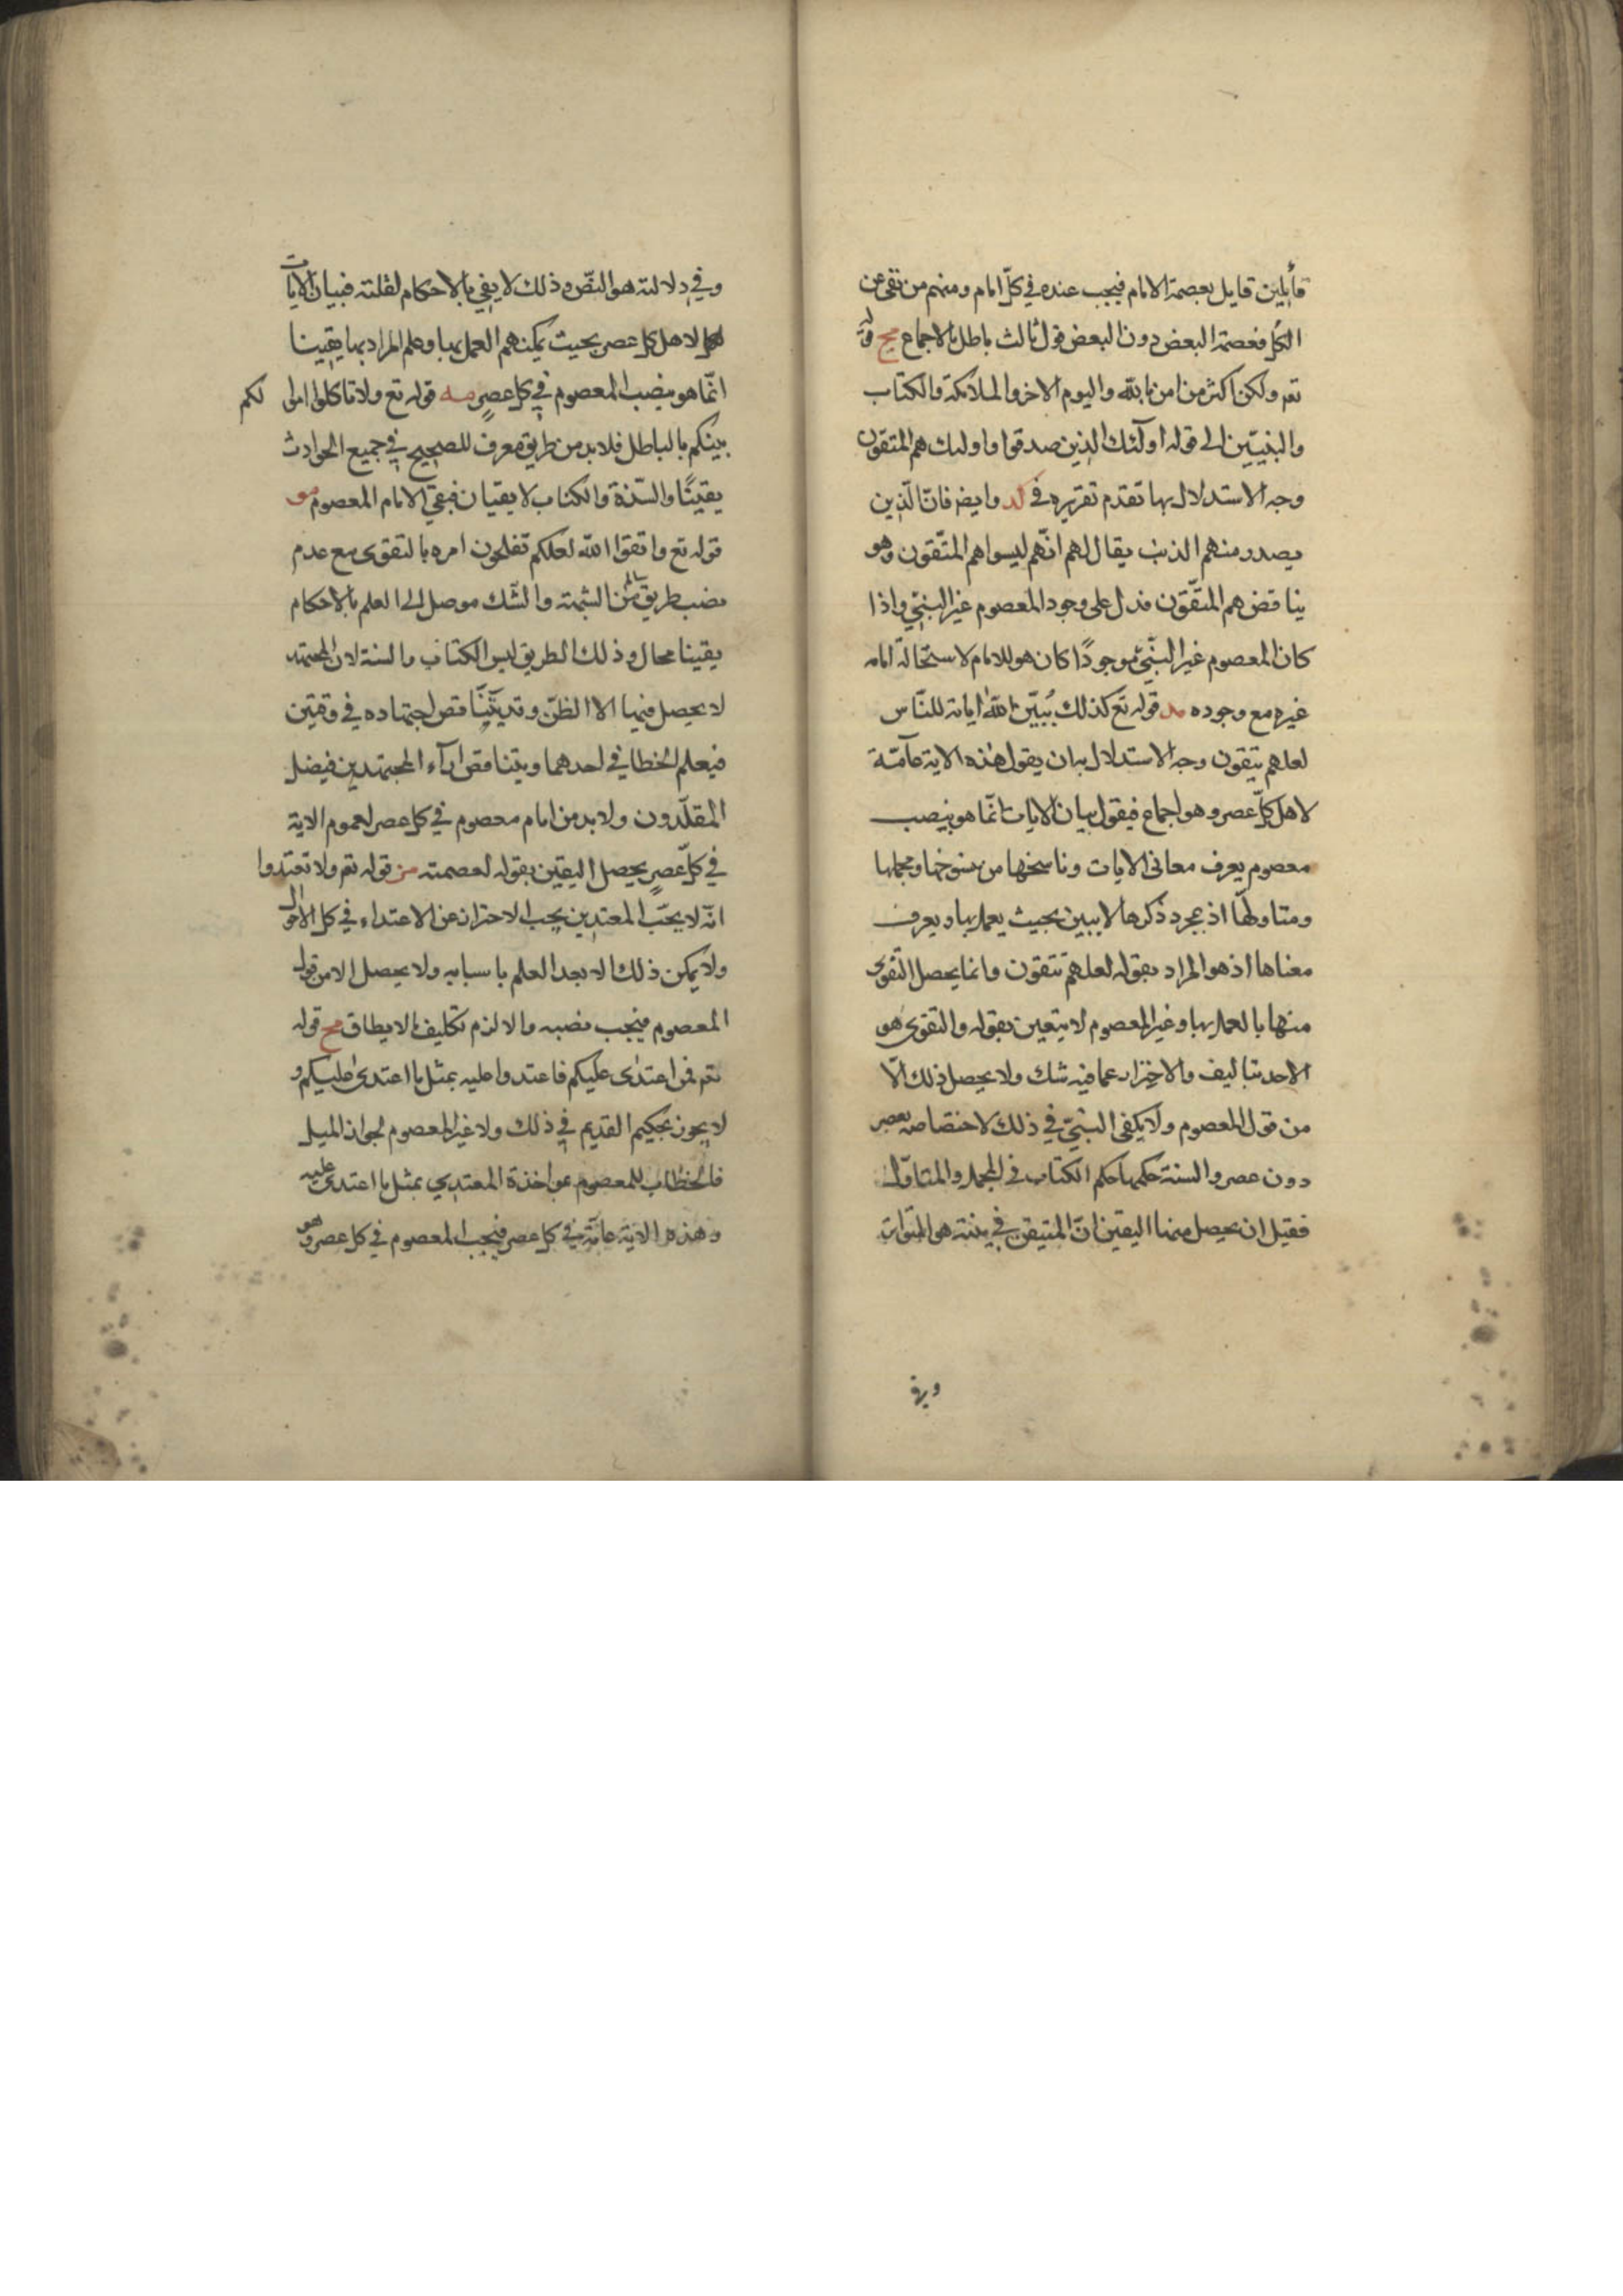 قائلين قايل بعصمة الامام فيجب عنده في كلّ امام ومنهم من نفى عن
الكل فعصمة البعض دون البعض قول ثالث باطل بالاجماع مج قوله
تعم ولكن اكثر من امن بالله واليوم الاخر والملائكة والكتاب
والنبيّين الى قوله اولئك الذين صدقوا واولئك هم المتقون
وجه الاستدلال بها تقدم تقريره في لد وايضا فانّ الّذين
يصدر منهم الذنب يقال لهم انّهم ليسوا هم المتّقون وهو
يناقض هم المتّقون فدل على وجود المعصوم غير النبيّ واذا
كان المعصوم غير النبيّ موجودًا كان هو للامام لاستحالة امامه
غيره مع وجوده مد قوله تع كذلك يُبيّن الله اياته للنّاس
لعلهم يتقون وجه الاستدلال بان يقول هذه الاية عامّة
لاهل كلّ عصر وهو اجماع فيقول بيان الايات انّما هو بنصب
معصوم يعرف معاني الايات وناسخها من منسوخها ومجملها
ومتاولها اذ بمجرد ذكرها لا يبين بحيث يعمل بها ويعرف
معناها اذ هو المراد بقوله لعلهم يتقون وانما يحصل التقوى
منها بالعمل بها وغير المعصوم لا يتعين بقوله والتقوى هو
الاحد والاحتراز عما فيه شك ولا يحصل ذلك الّا
من قول المعصوم ولا يكفي النبيّ في ذلك لاختصاصه بعصر
دون عصر والسنة حكمها حكم الكتاب في المجمل والمتاوّل
فقيل ان يحصل منهما اليقين انّ المتيقن في متنه هو المتواتر
وفي
وفي دلالته هو النصّ وذلك لا يفي بالاحكام لقلته فبيان الايات
لاهل كل عصر بحيث يمكنهم العمل بها وعلم المراد بها يقينا
انّما هو بنصب المعصوم في كل عصر مه قوله تع ولا تاكلوا اموالكم
بينكم بالباطل فلا بد من طريق معرف للصحيح في جميع الحوادث
يقينًا والسّنة والكتاب لا يفيان فبقي الامام المعصوم مو
قوله تع واتقوا الله لعلكم تفلحون امره بالتقوى مع عدم
نصب طريق سالم من الشبهة والشك موصل الى العلم بالاحكام
يقينا محال وذلك الطريق ليس الكتاب والسنة لان المجتهد
لا يحصل فيها الا الظنّ وقد يتناقض اجتهاده في وقتين
فيعلم الخطا في احدهما ويتناقض آراء المجتهدين فيضل
المقلّدون ولا بد من امام معصوم في كل عصر لعموم الاية
في كلّ عصرٍ يحصل اليقين بقوله لعصمته مز قوله تعم ولا تعتدوا
انّه لا يحبّ المعتدين يجب الاحتراز عن الاعتداء في كل الاحوال
ولا يمكن ذلك الا بعد العلم باسبابه ولا يحصل الا من قول
المعصوم فيجب نصبه والا لزم تكليف ما لا يطاق مح قوله
تعم فمن اعتدى عليكم فاعتدوا عليه بمثل ما اعتدى عليكم و
لا يجوز تحكيم القديم في ذلك ولا غير المعصوم لجواز الميل
فالخطاب للمعصوم بمواخذة المعتدي بمثل ما اعتدى عليه
وهذه الاية عامّة في كل عصر فيجب المعصوم في كل عصر وهو